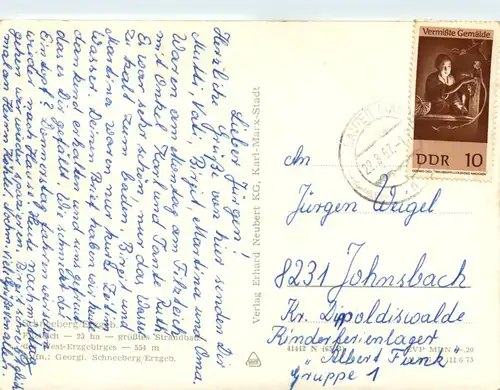 Lieber Jürgen!
Herzliche Grüße von hier senden Dir
Mutti, Vati, Birgit, Martina und Oma.
Waren am Montag am Filzteich
mit Onkel Karl und Tante Ruth.
Es war sehr schön nur das Wasser
zu kalt zum baden, Birgit und
Martina waren nur kurze Zeit im
Wasser. Deinen Brief haben wir mit
dankend erhalten und uns gefreut
das es Dir gefällt. Wie schmeckt das
Eintopf? Donnerstag fahren wir
wieder nach Hause. Heute nachmittag
gehen wir wieder spazieren. Birgit
malen
Verlag Erhard Neubert KG, Karl-Marx-Stadt
Schneeberg/Erzgeb.
Filzteich — 23 ha — größtes Strandbad
des West-Erzgebirges — 554 m
Georgi, Schneeberg/Erzgeb.
Vermißte Gemälde
DDR 10
An
Jürgen Weigel
8231 Johnsbach
Kr. Dippoldiswalde
Kinderferienlager
"Albert Funk"
Gruppe 1
41442 N